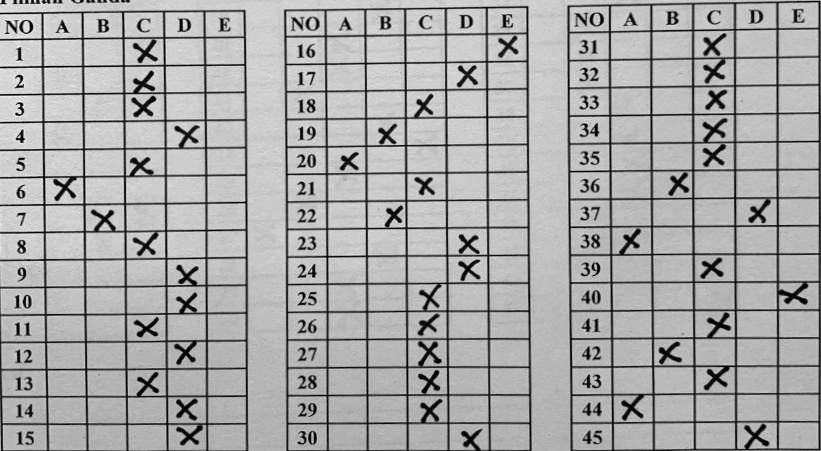 Pilihan Ganda
NO A B C D E
1 X
2 X
3 X
4 X
5 X
6 X
7 X
8 X
9 X
10 X
11 X
12 X
13 X
14 X
15 X
NO A B C D E
16 X
17 X
18 X
19 X
20 X
21 X
22 X
23 X
24 X
25 X
26 X
27 X
28 X
29 X
30 X
NO A B C D E
31 X
32 X
33 X
34 X
35 X
36 X
37 X
38 X
39 X
40 X
41 X
42 X
43 X
44 X
45 X